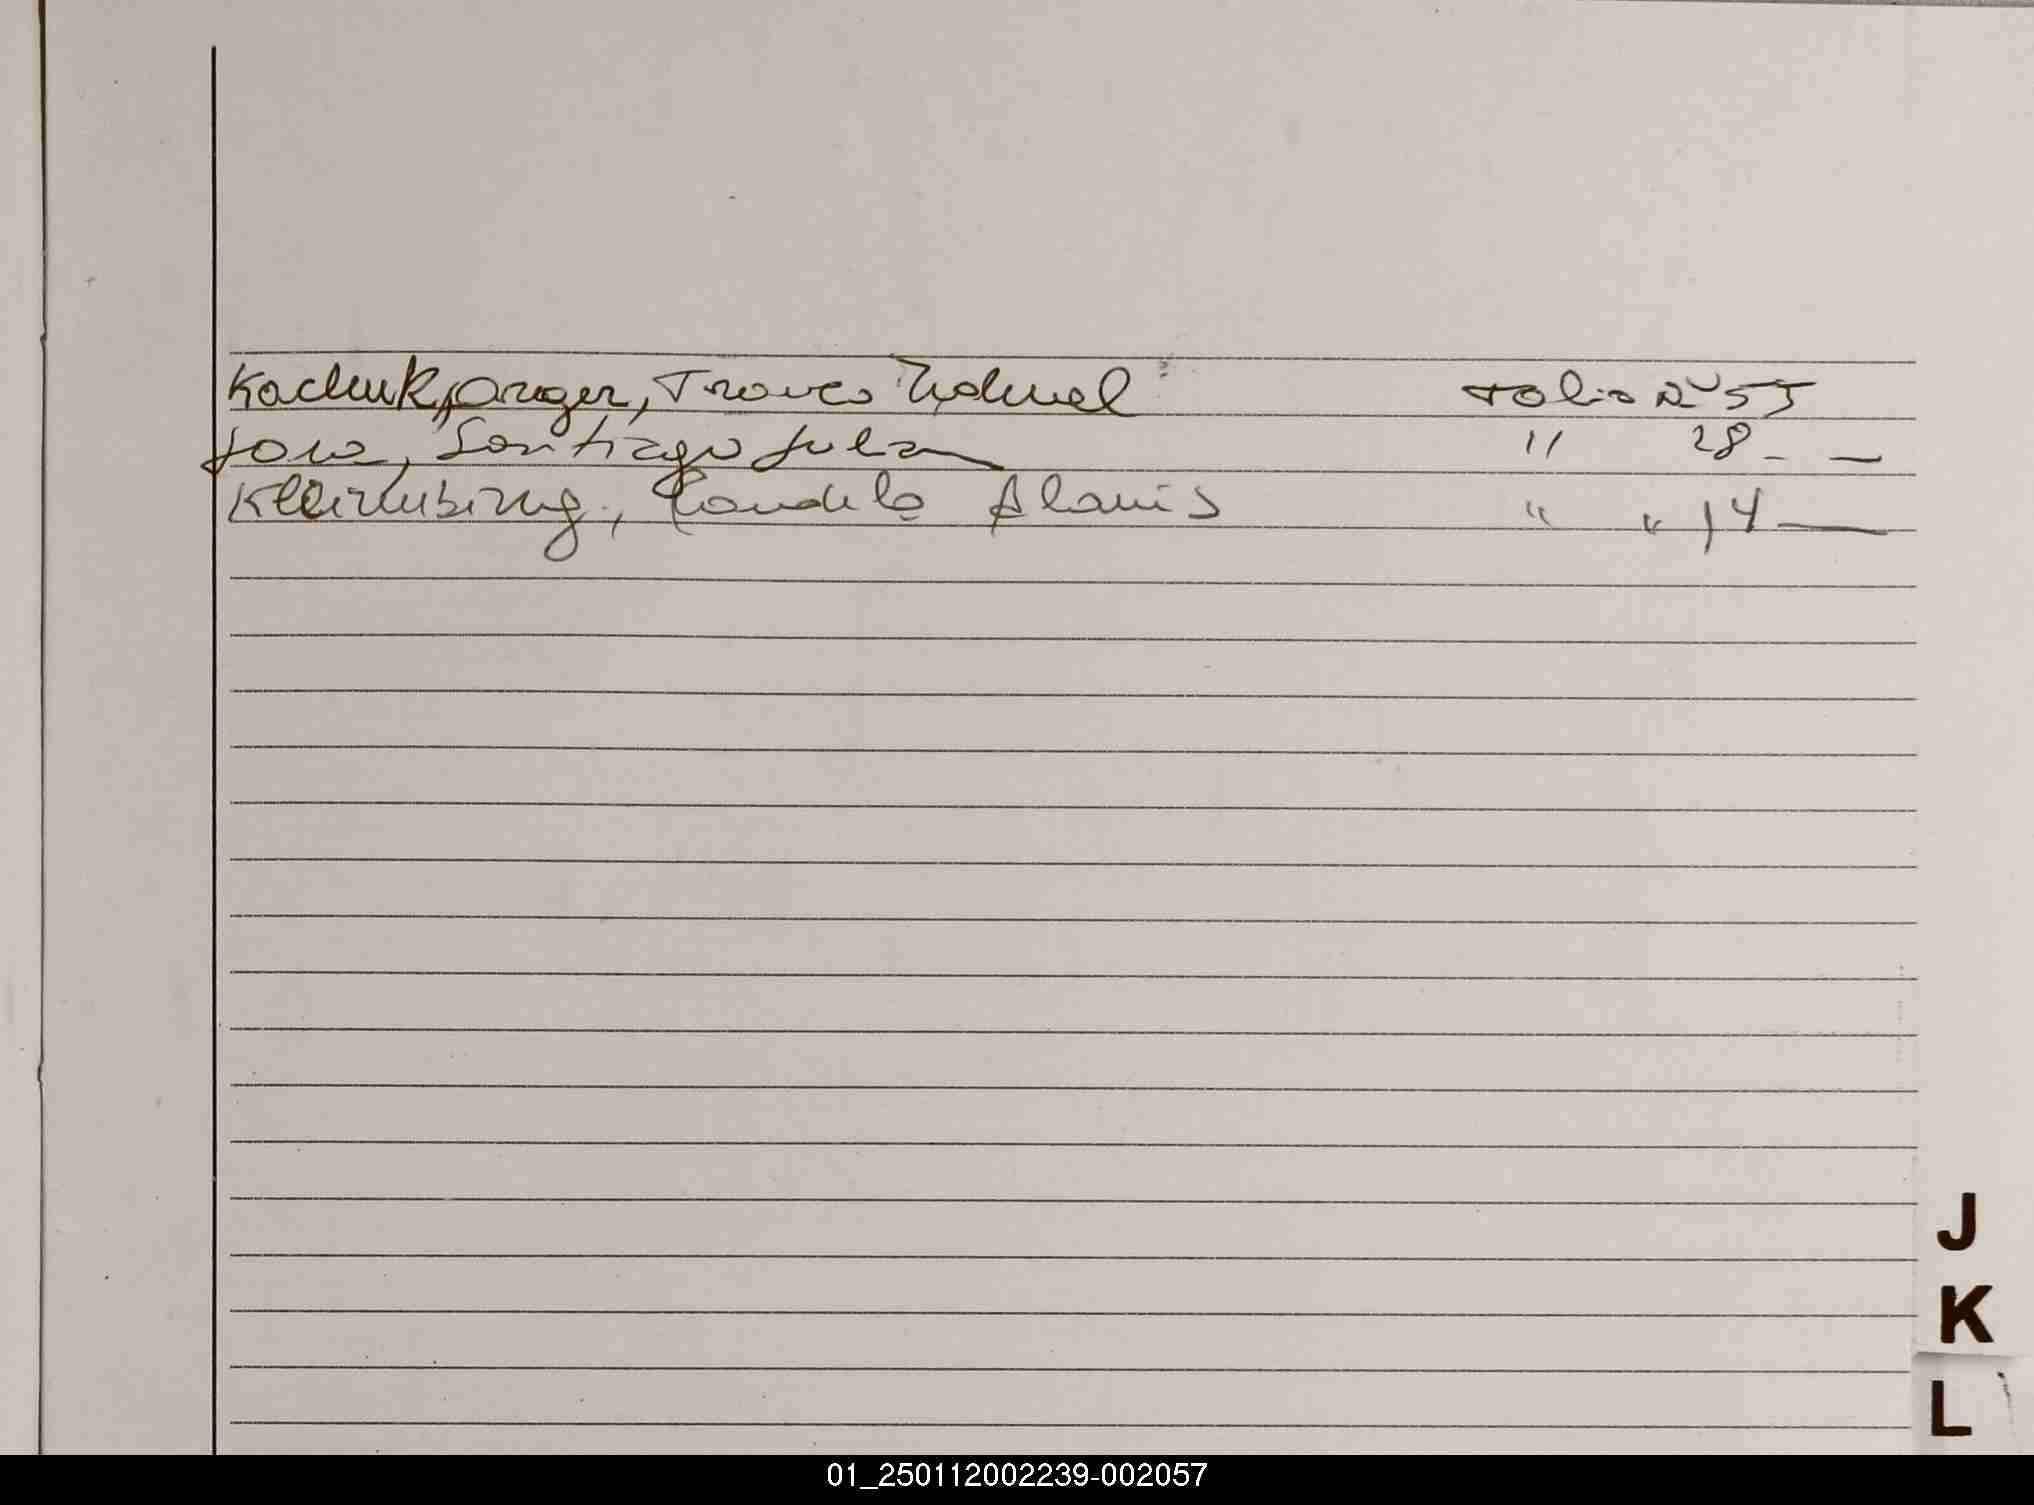 Kachuk, Anger, Franco Nahuel Folio Nº 55
Jara, Santiago Julian " 28 - —
Kleinubing, Candela Alanis " " 14 —
J
K
L
01_250112002239-002057